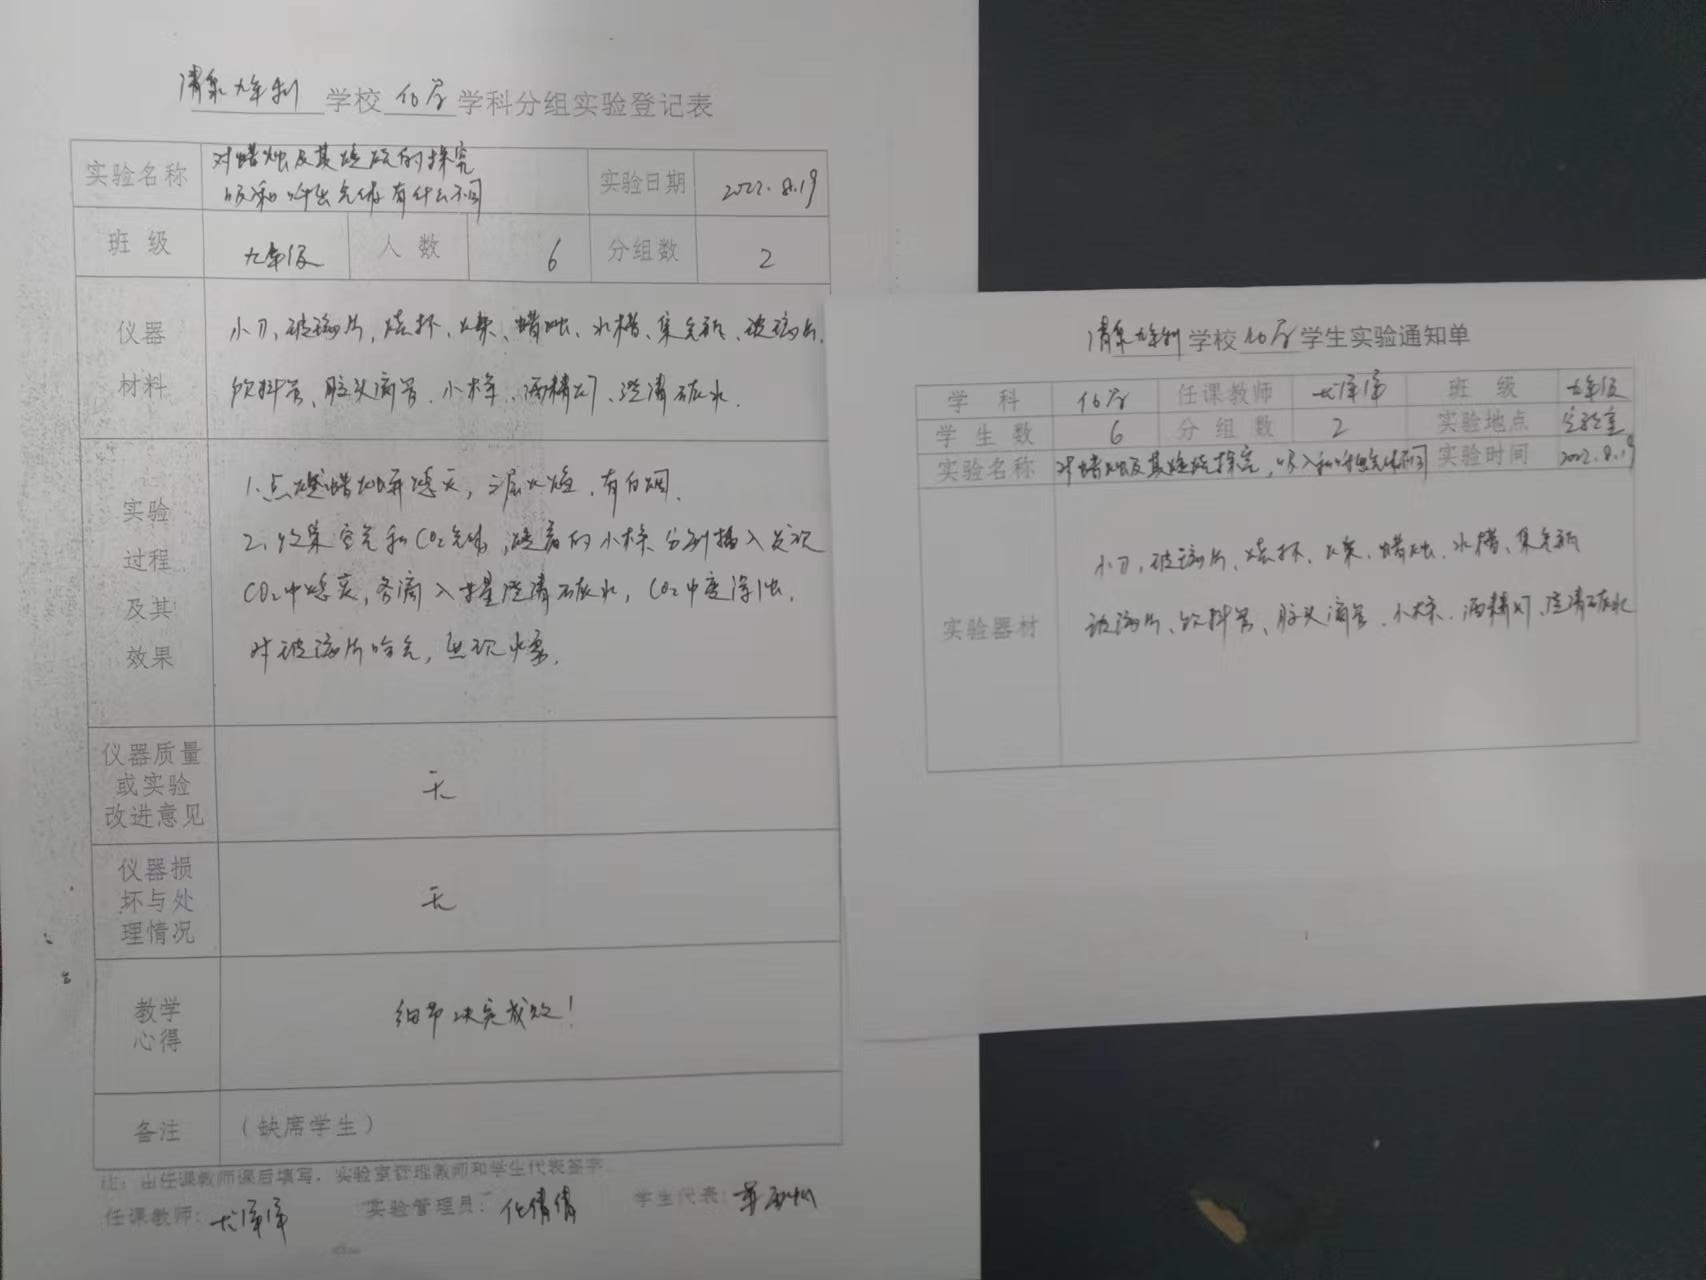 清泉九年制学校化学学科分组实验登记表
实验名称 对蜡烛及其燃烧的探究
吸和呼出气体有什么不同
实验日期 2022.8.19
班级 九年级 人数 6 分组数 2
仪器材料
小刀,玻璃片,烧杯、火柴、蜡烛、水槽、集气瓶、玻璃片、
饮料管、胶头滴管、小木条、酒精灯、澄清石灰水.
实验过程及其效果
1.点燃蜡烛并熄灭,三层火焰、有白烟.
2、收集空气和CO2气体,燃着的小木条分别插入发现
CO2中熄灭,各滴入少量澄清石灰水,CO2中变浑浊.
对玻璃片哈气,出现水雾.
仪器质量或实验改进意见
无
仪器损坏与处理情况
无
教学心得
细节决定成败!
备注 (缺席学生)
注:由任课教师课后填写,实验室管理教师和学生代表签字
任课教师: 实验管理员: 倩倩 学生代表:
清泉九年制学校化学学生实验通知单
学科 化学 任课教师 班级 九年级
学生数 6 分组数 2 实验地点 实验室
实验名称 对蜡烛及其燃烧探究,吸入和呼出气体不同 实验时间 2022.8.19
实验器材
小刀,玻璃片、烧杯、火柴、蜡烛、水槽、集气瓶
玻璃片、饮料管、胶头滴管、小木条、酒精灯、澄清石灰水